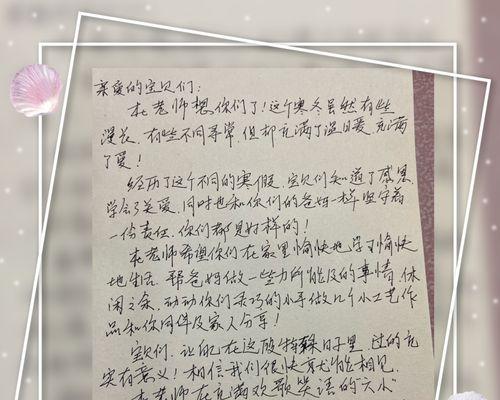 亲爱的宝贝们:
杜老师想你们了!这个寒冬虽然有些
漫长,有些不同寻常,但却充满了温暖,充满
了爱!
经历了这个不同的寒假,宝贝们知道了感恩,
学会了关爱,同时也和你们的爸妈一样坚守着
一份责任,你们都是好样的!
杜老师希望你们在家里愉快地学习愉快
地生活,帮爸妈做一些力所能及的事情,休
闲之余,动动你们灵巧的小手做几个小工艺作
品和你同伴及家人分享!
宝贝们,让自己在这段特殊日子里,过的充
实有意义!相信我们很快就能相见,
杜老师在充满欢歌笑语的"六小"